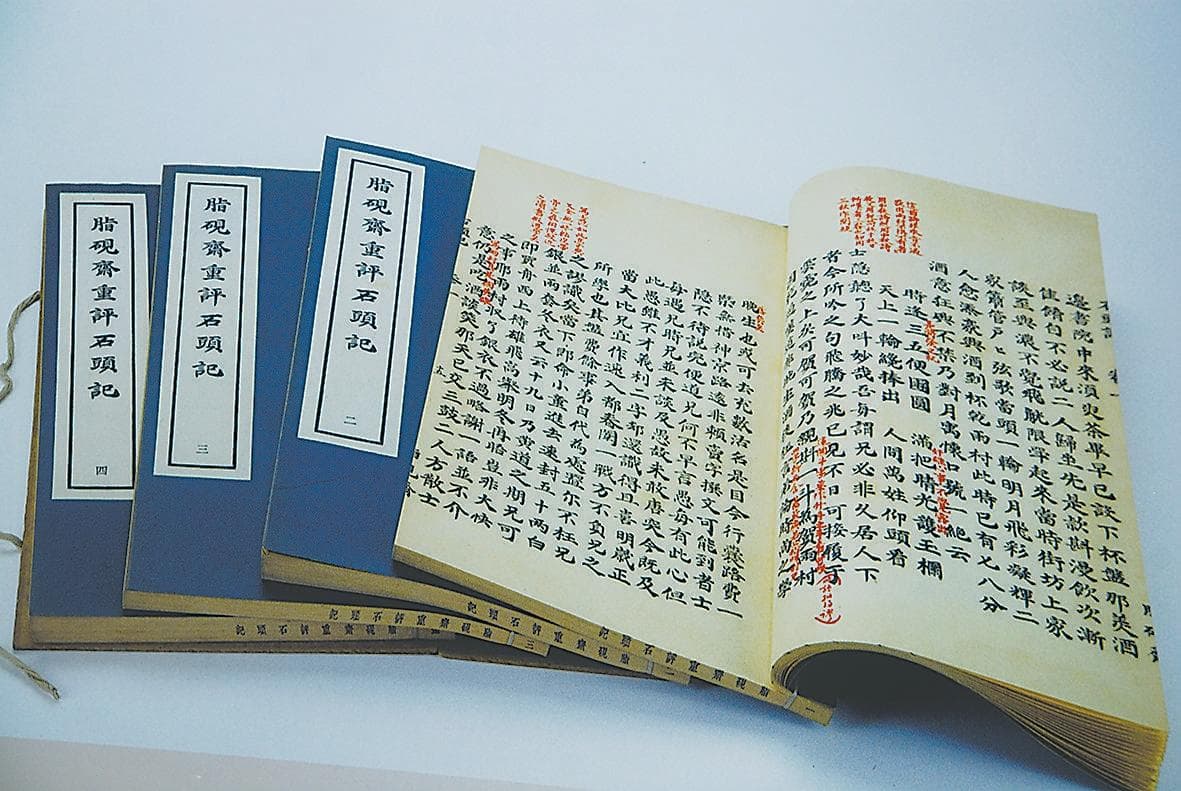 脂硯齋重評石頭記 四
脂硯齋重評石頭記 三
脂硯齋重評石頭記 二
邊書院中來須臾茶畢早已設下杯盤那美酒
佳餚自不必說二人歸坐先是款斟漫飲次漸
談至興濃不覺飛觥限斝起來當時街坊上家
家簫管戶匕弦歌當頭一輪明月飛彩凝輝二
人愈添豪興酒到杯乾雨村此時已有七八分
酒意狂興不禁乃對月寓懷口號一絕云
時逢三五便團圓 滿把晴光護玉欄
天上一輪纔捧出 人間萬姓仰頭看
士隱聽了大叫妙哉吾每謂兄必非久居人下
者今所吟之句飛騰之兆已見不日可接履于
雲霓之上矣可賀可賀乃親斟一斗為賀雨村
晚生也或可去充數沽名是目今行囊路費一
槩無措神京路遠非賴賣字撰文可能到者士
隱不待說完便道兄何不早言愚每有此心但
每遇兄時兄並未談及愚故未敢唐突今既及
此愚雖不才義利二字却還識得且喜明歲正
當大比兄宜作速入都春闈一戰方不負兄之
所學也其盤費餘事弟自代為處置亦不枉兄
之謬識矣當下即命小童進去速封五十兩白
銀並兩套冬衣又云十九日乃黃道之期兄可
即買舟西上待雄飛高舉明冬再晤豈非大快
之事耶雨村收了銀衣不過略謝一語並不介
意仍是吃酒談笑那天已交三鼓二人方散士
脂硯齋重評石頭記
脂硯齋重評石頭記 三
脂硯齋重評石頭記 二
脂硯齋重評石頭記 一